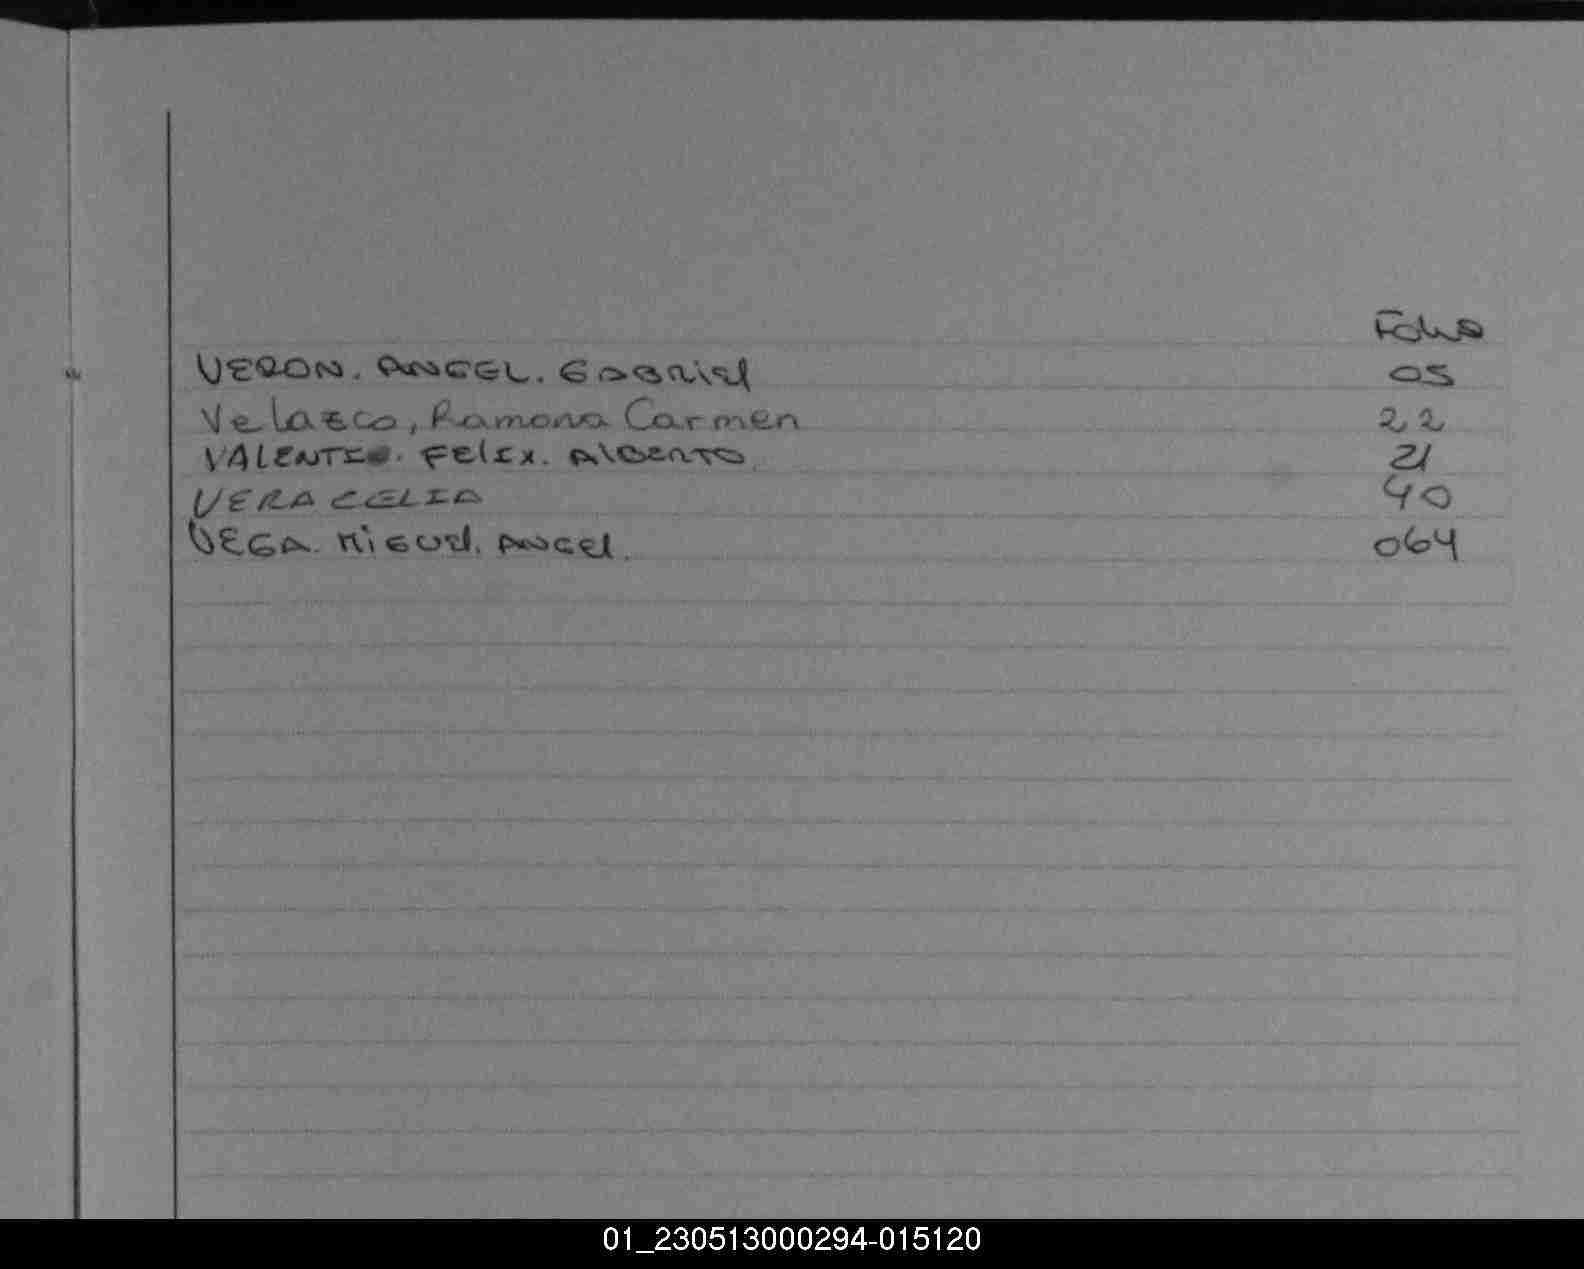 Folio
VERON. ANGEL. GABRiel 05
Velazco, Ramona Carmen 22
FElIX. AlBERTO. 21
VERA CELIA 40
VEGA. MiGUEl. ANGEl. 064
01_230513000294-015120